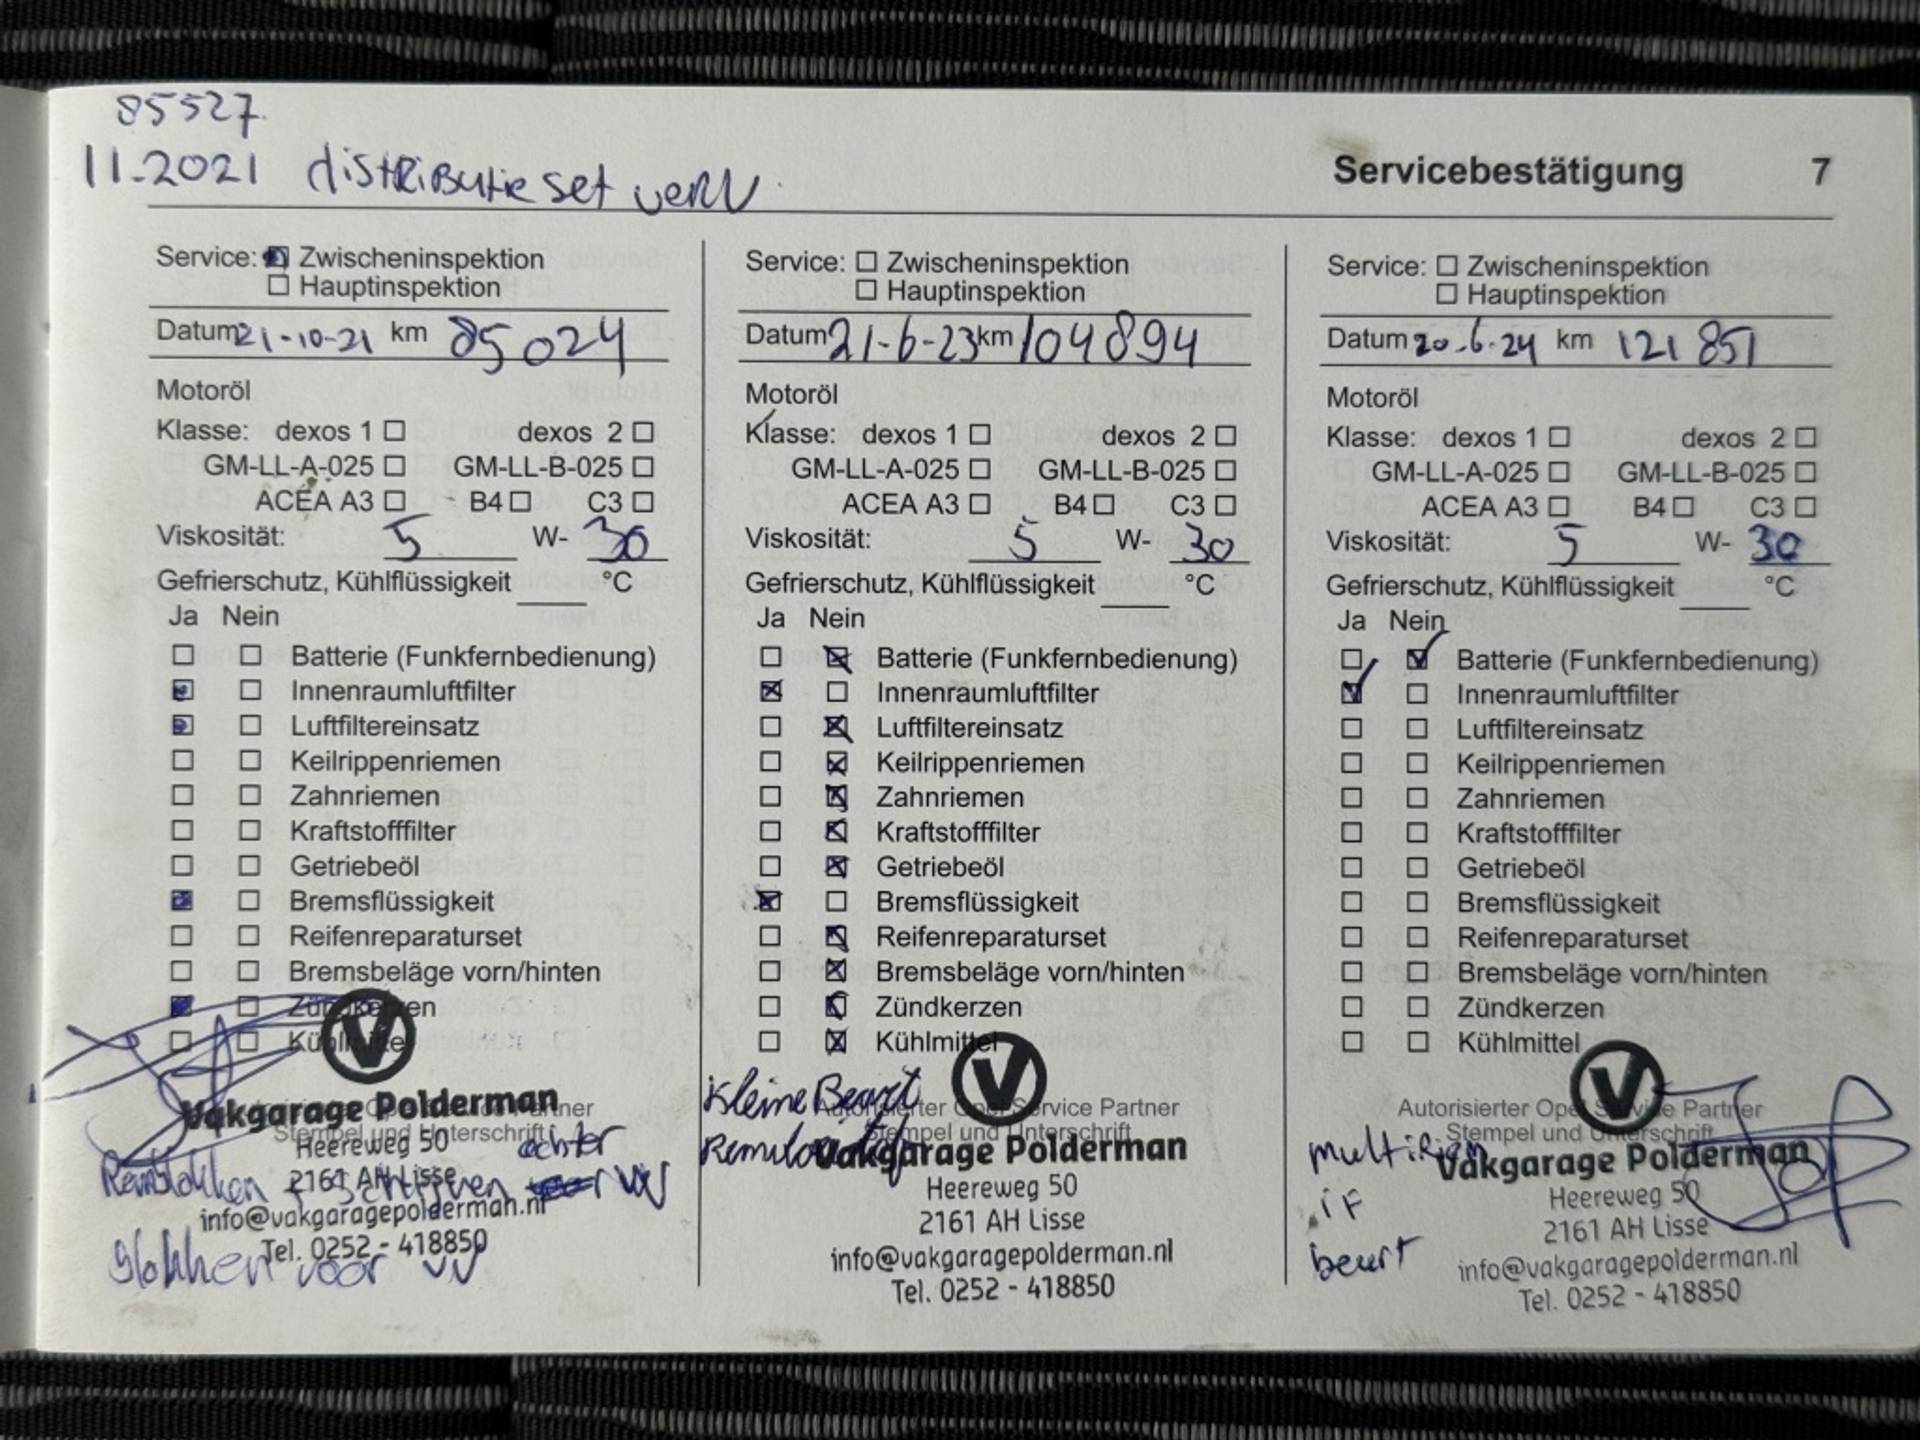 85527
11-2021 distributie set verv
Servicebestätigung 7
Service: Zwischeninspektion
Hauptinspektion
Datum 21-10-21 km 85024
Motoröl
Klasse: dexos 1 dexos 2
GM-LL-A-025 GM-LL-B-025
ACEA A3 B4 C3
Viskosität: 5 W- 30
Gefrierschutz, Kühlflüssigkeit °C
Ja Nein
Batterie (Funkfernbedienung)
Innenraumluftfilter
Luftfiltereinsatz
Keilrippenriemen
Zahnriemen
Kraftstofffilter
Getriebeöl
Bremsflüssigkeit
Reifenreparaturset
Bremsbeläge vorn/hinten
Zündkerzen
Kühlmittel
Autorisierter Opel Service Partner
Stempel und Unterschrift
Vakgarage Polderman
Heereweg 50
2161 AH Lisse
info@vakgaragepolderman.nl
Tel. 0252 - 418850
achter
Remblokken + schijven VV
blokken voor VV
Service: Zwischeninspektion
Hauptinspektion
Datum 21-6-23 km 104894
Motoröl
Klasse: dexos 1 dexos 2
GM-LL-A-025 GM-LL-B-025
ACEA A3 B4 C3
Viskosität: 5 W- 30
Gefrierschutz, Kühlflüssigkeit °C
Ja Nein
Batterie (Funkfernbedienung)
Innenraumluftfilter
Luftfiltereinsatz
Keilrippenriemen
Zahnriemen
Kraftstofffilter
Getriebeöl
Bremsflüssigkeit
Reifenreparaturset
Bremsbeläge vorn/hinten
Zündkerzen
Kühlmittel
Kleine Beurt
Autorisierter Opel Service Partner
Stempel und Unterschrift
Vakgarage Polderman
Heereweg 50
2161 AH Lisse
info@vakgaragepolderman.nl
Tel. 0252 - 418850
Service: Zwischeninspektion
Hauptinspektion
Datum 20-6-24 km 121851
Motoröl
Klasse: dexos 1 dexos 2
GM-LL-A-025 GM-LL-B-025
ACEA A3 B4 C3
Viskosität: 5 W- 30
Gefrierschutz, Kühlflüssigkeit °C
Ja Nein
Batterie (Funkfernbedienung)
Innenraumluftfilter
Luftfiltereinsatz
Keilrippenriemen
Zahnriemen
Kraftstofffilter
Getriebeöl
Bremsflüssigkeit
Reifenreparaturset
Bremsbeläge vorn/hinten
Zündkerzen
Kühlmittel
Autorisierter Opel Service Partner
Stempel und Unterschrift
multiriem
iF
beurt
Vakgarage Polderman
Heereweg 50
2161 AH Lisse
info@vakgaragepolderman.nl
Tel. 0252 - 418850